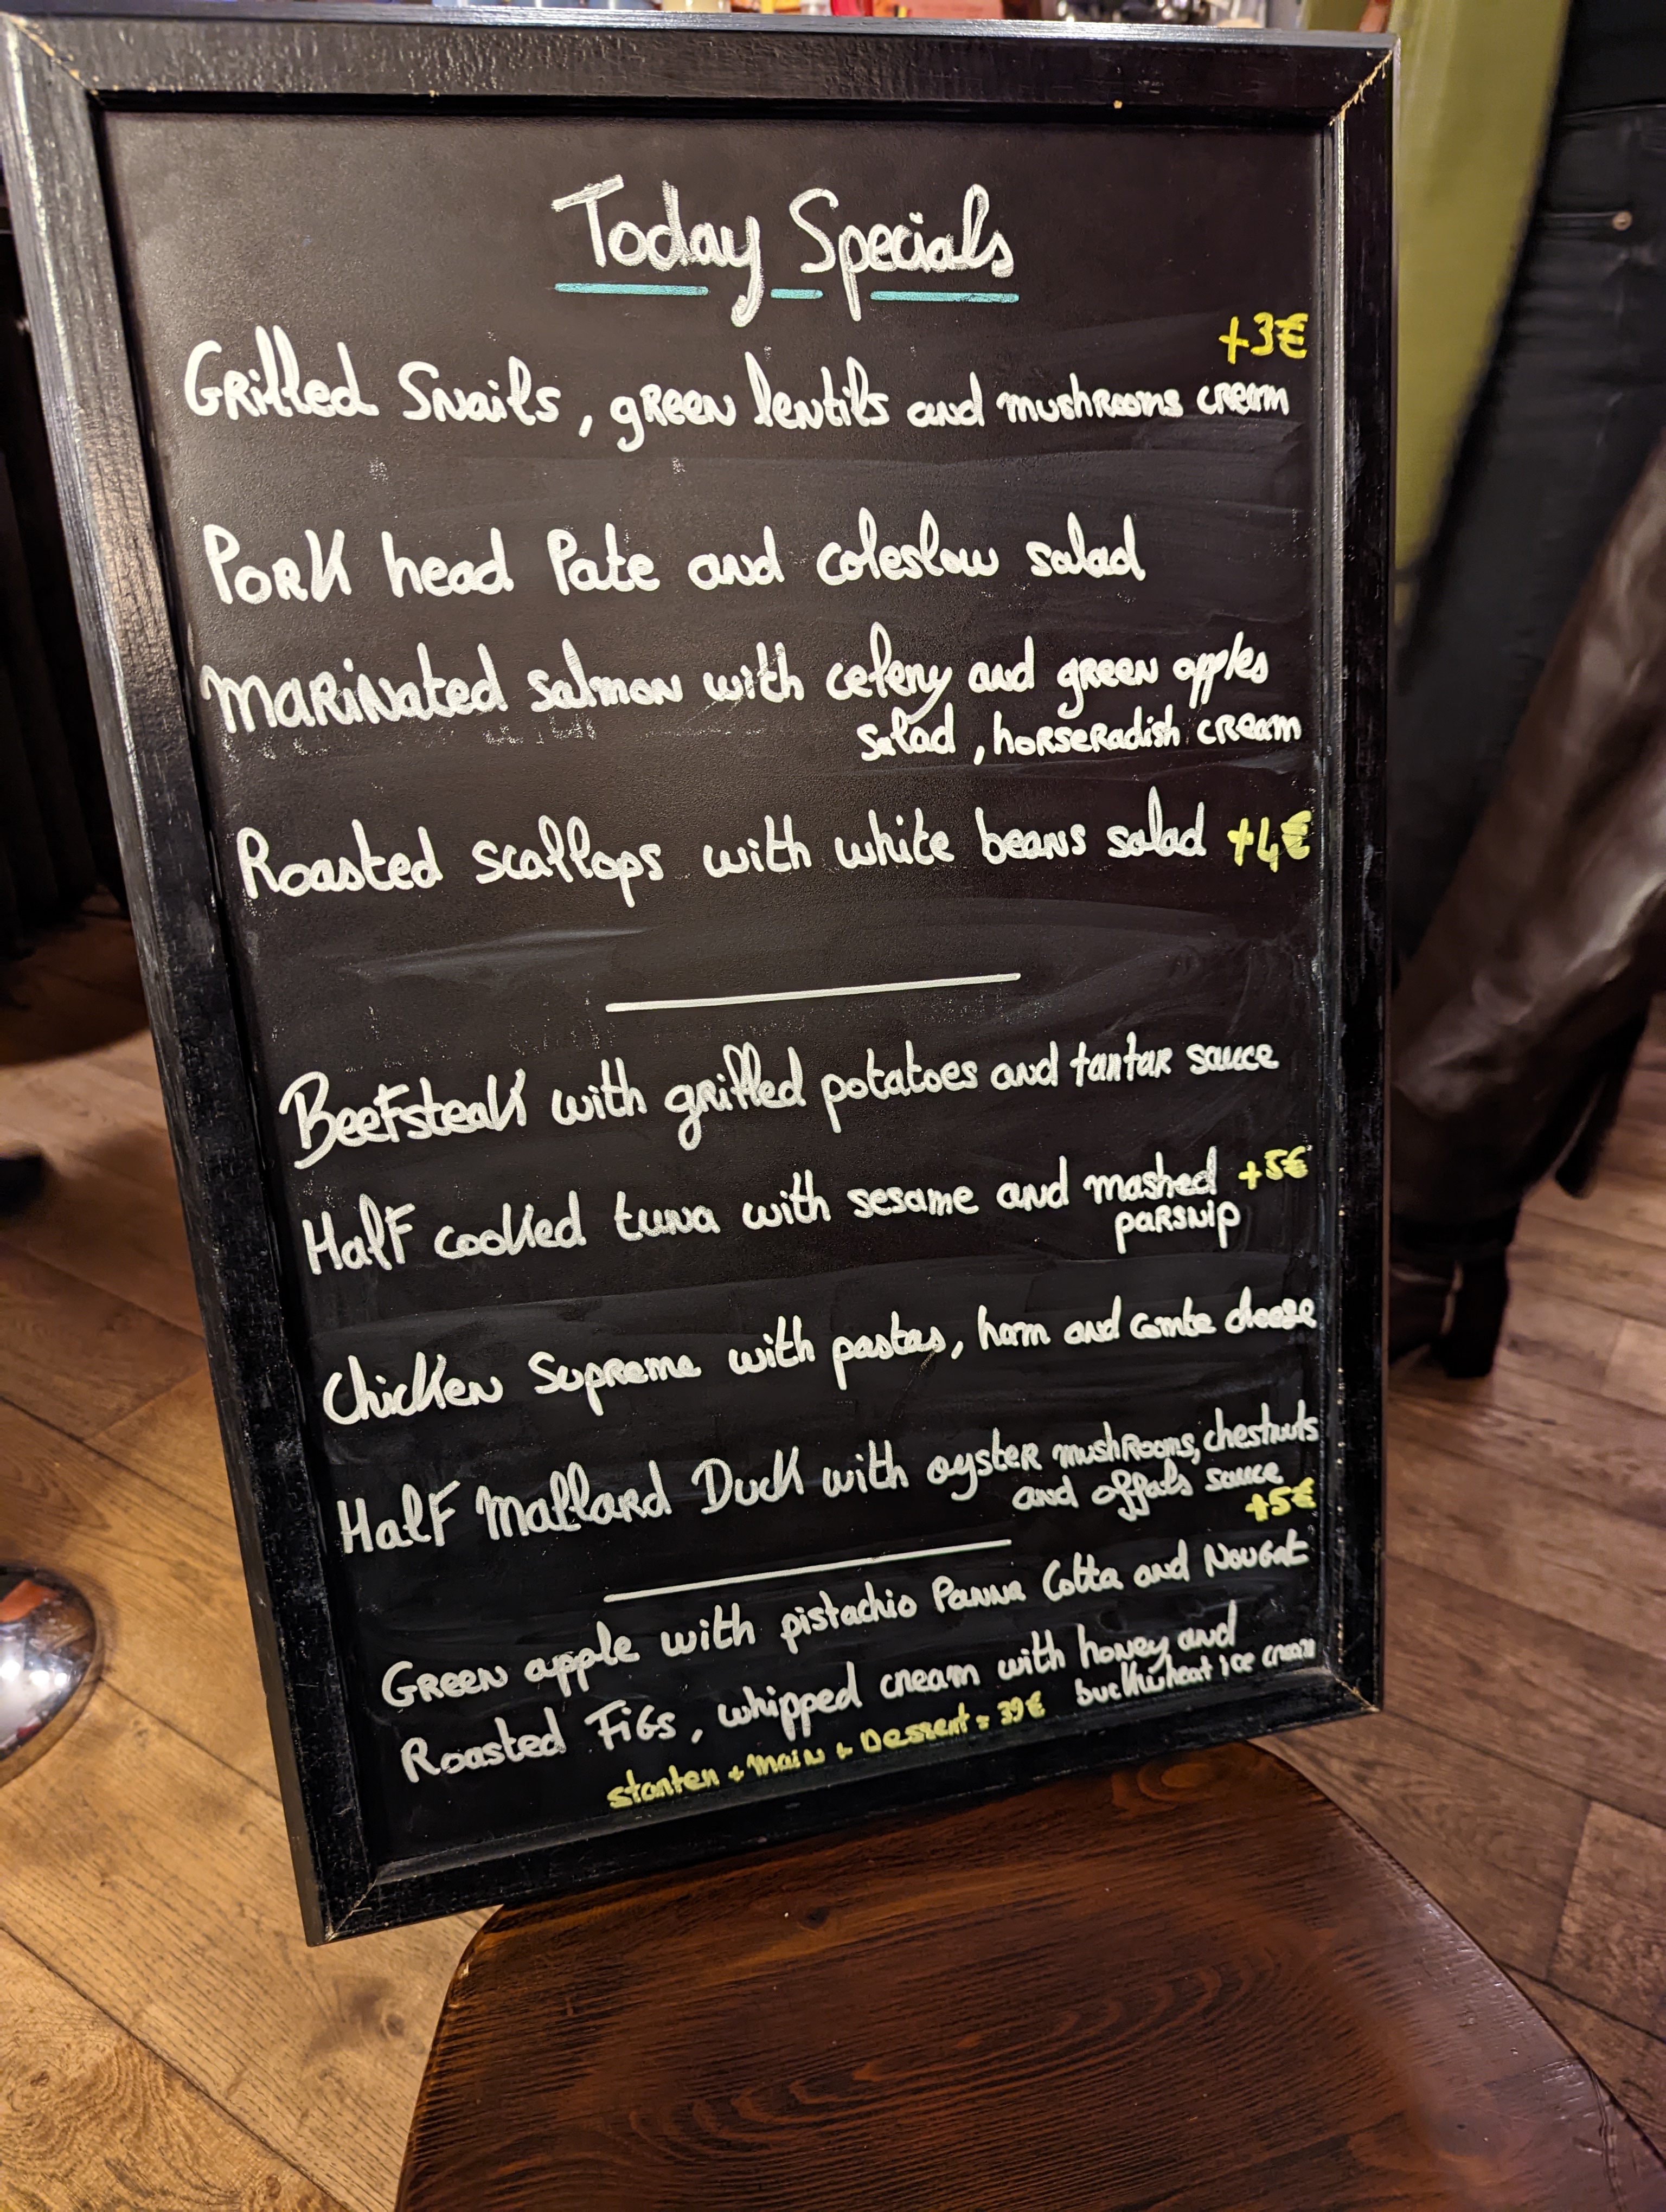 Today Specials
+3€
Grilled Snails, green lentils and mushrooms cream
Pork head Pate and coleslow salad
Marinated salmon with celery and green apples
salad, horseradish cream
Roasted scallops with white beans salad +4€
Beefsteak with grilled potatoes and tartar sauce
Half cooked tuna with sesame and mashed +5€
parsnip
Chicken Supreme with pastas, ham and comte cheese
Half Mallard Duck with oyster mushrooms, chestnuts
and offals sauce
+5€
Green apple with pistachio Panna Cotta and Nougat
Roasted Figs, whipped cream with honey and
buckwheat ice cream
starter + Main + Dessert = 39€